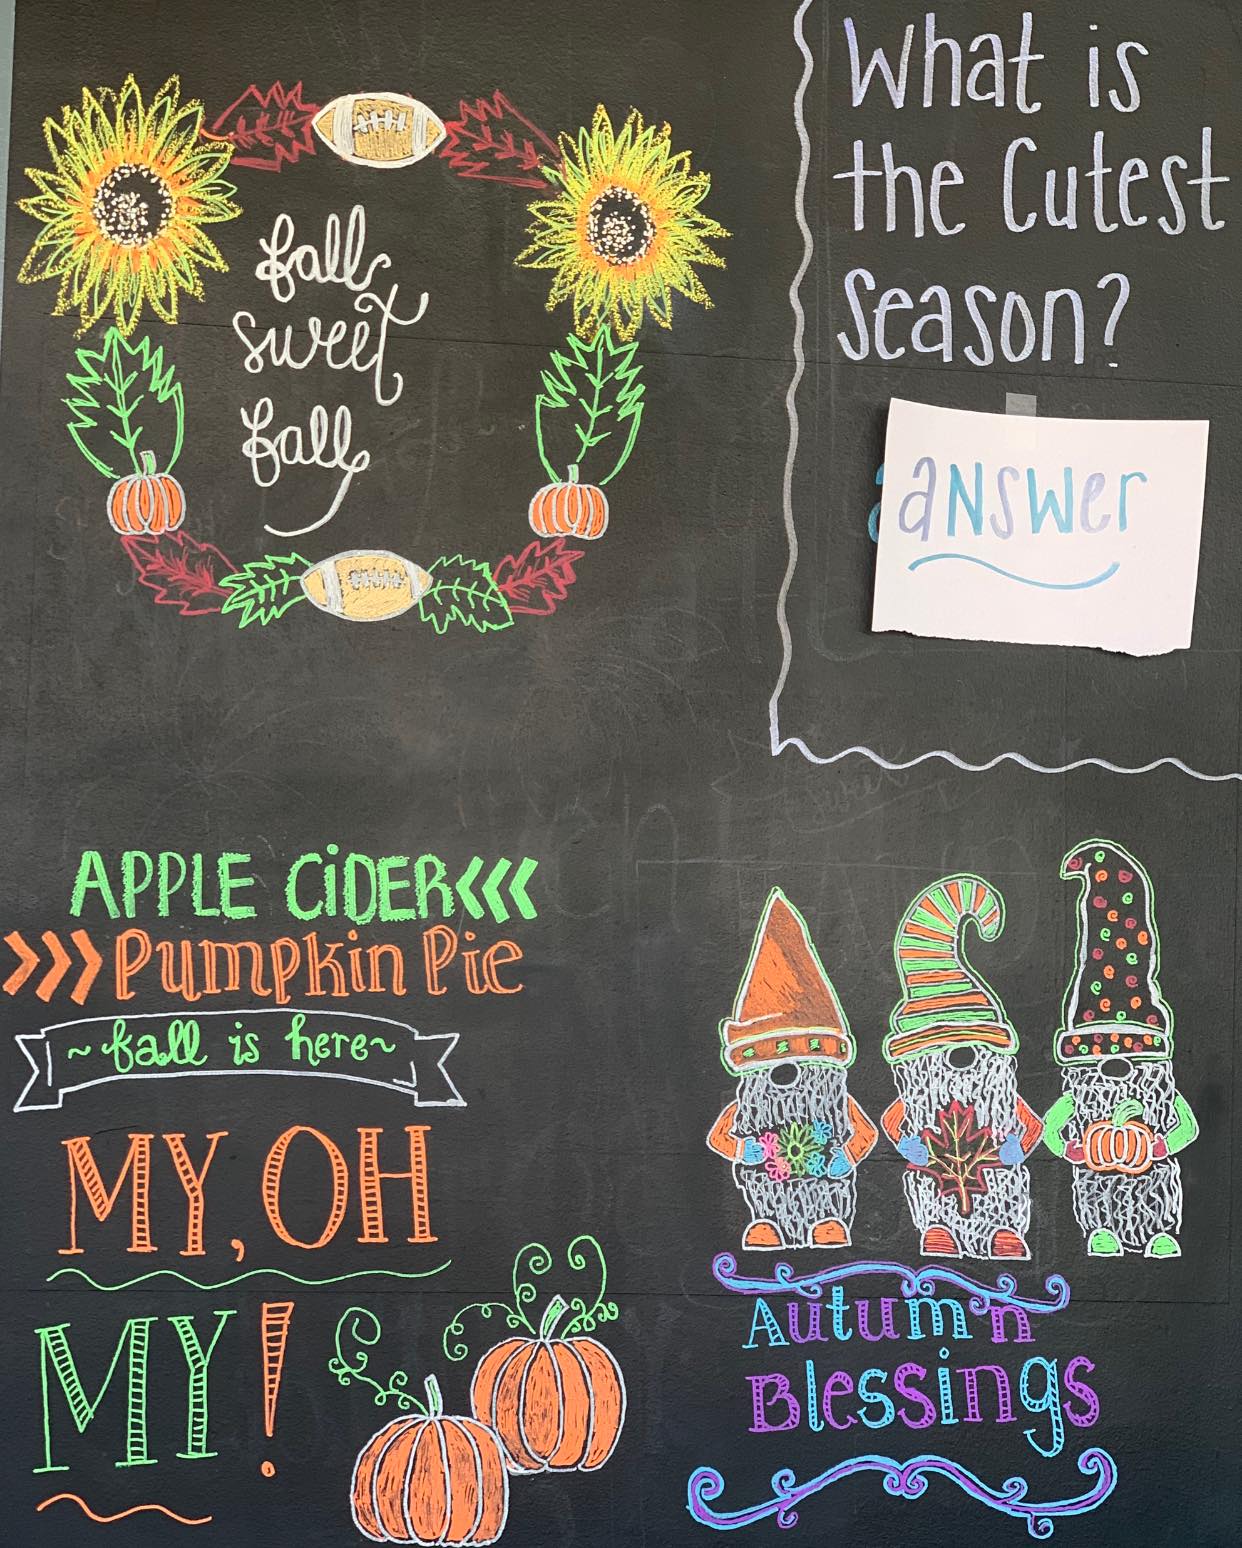 fall
sweet
fall
What is
the Cutest
Season?
answer
APPLE CiDER<<<
>>>Pumpkin Pie
~fall is here~
MY, OH
MY!
Autumn
Blessings